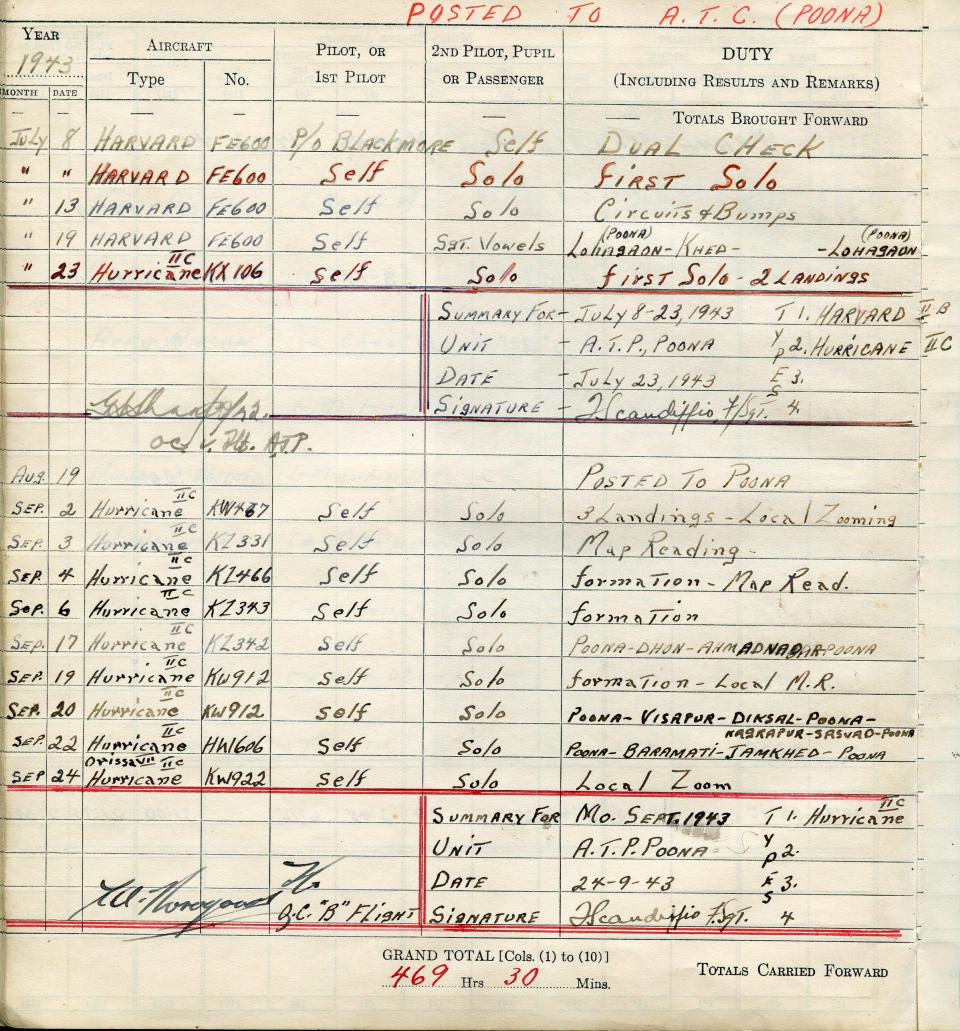 POSTED TO A.T.C. (POONA)
YEAR AIRCRAFT PILOT, OR 2ND PILOT, PUPIL DUTY
1943 Type No. 1ST PILOT OR PASSENGER (INCLUDING RESULTS AND REMARKS)
MONTH DATE
— — — — — — — TOTALS BROUGHT FORWARD
July 8 HARVARD FE600 P/O BLACKMORE Self DUAL CHECK
" " HARVARD FE600 Self Solo FIRST Solo
" 13 HARVARD FE600 Self Solo Circuits & Bumps
" 19 HARVARD FE600 Self Sgt. Vowels LOHAGAON (POONA) - KHED - - LOHAGAON (POONA)
" 23 Hurricane IIC KX106 Self Solo FIRST Solo - 2 LANDINGS
SUMMARY FOR - July 8-23, 1943 T 1. HARVARD II B
UNIT - A.T.P., POONA Y P 2. HURRICANE II C
DATE - July 23, 1943 E 3.
SIGNATURE - F/Sgt. S 4.
AUG. 19 POSTED TO POONA
SEP. 2 Hurricane IIC Self Solo 3 Landings - Local Zooming
SEP. 3 Hurricane IIC KZ331 Self Solo Map Reading
SEP. 4 Hurricane IIC KZ466 Self Solo formation - Map Read.
SEP. 6 Hurricane IIC KZ343 Self Solo formation
SEP. 17 Hurricane IIC KZ342 Self Solo POONA-DHON-AHMADNAGAR-POONA
SEP. 19 Hurricane IIC KW912 Self Solo formation - Local M.R.
SEP. 20 Hurricane IIC KW912 Self Solo POONA- VISAPUR- DIKSAL-POONA-
-SASVAD-POONA
SEP. 22 Hurricane IIC HW606 Self Solo POONA- BARAMATI- JAMKHED- POONA
Orissa VII
SEP 24 Hurricane IIC KW922 Self Solo Local Zoom
SUMMARY FOR Mo. SEPT. 1943 T 1. Hurricane IIC
UNIT A.T.P. POONA Y P 2.
DATE 24-9-43 E 3.
O.C. "B" FLIGHT SIGNATURE F/Sgt. S 4
GRAND TOTAL [Cols. (1) to (10)]
469 Hrs 30 Mins. TOTALS CARRIED FORWARD